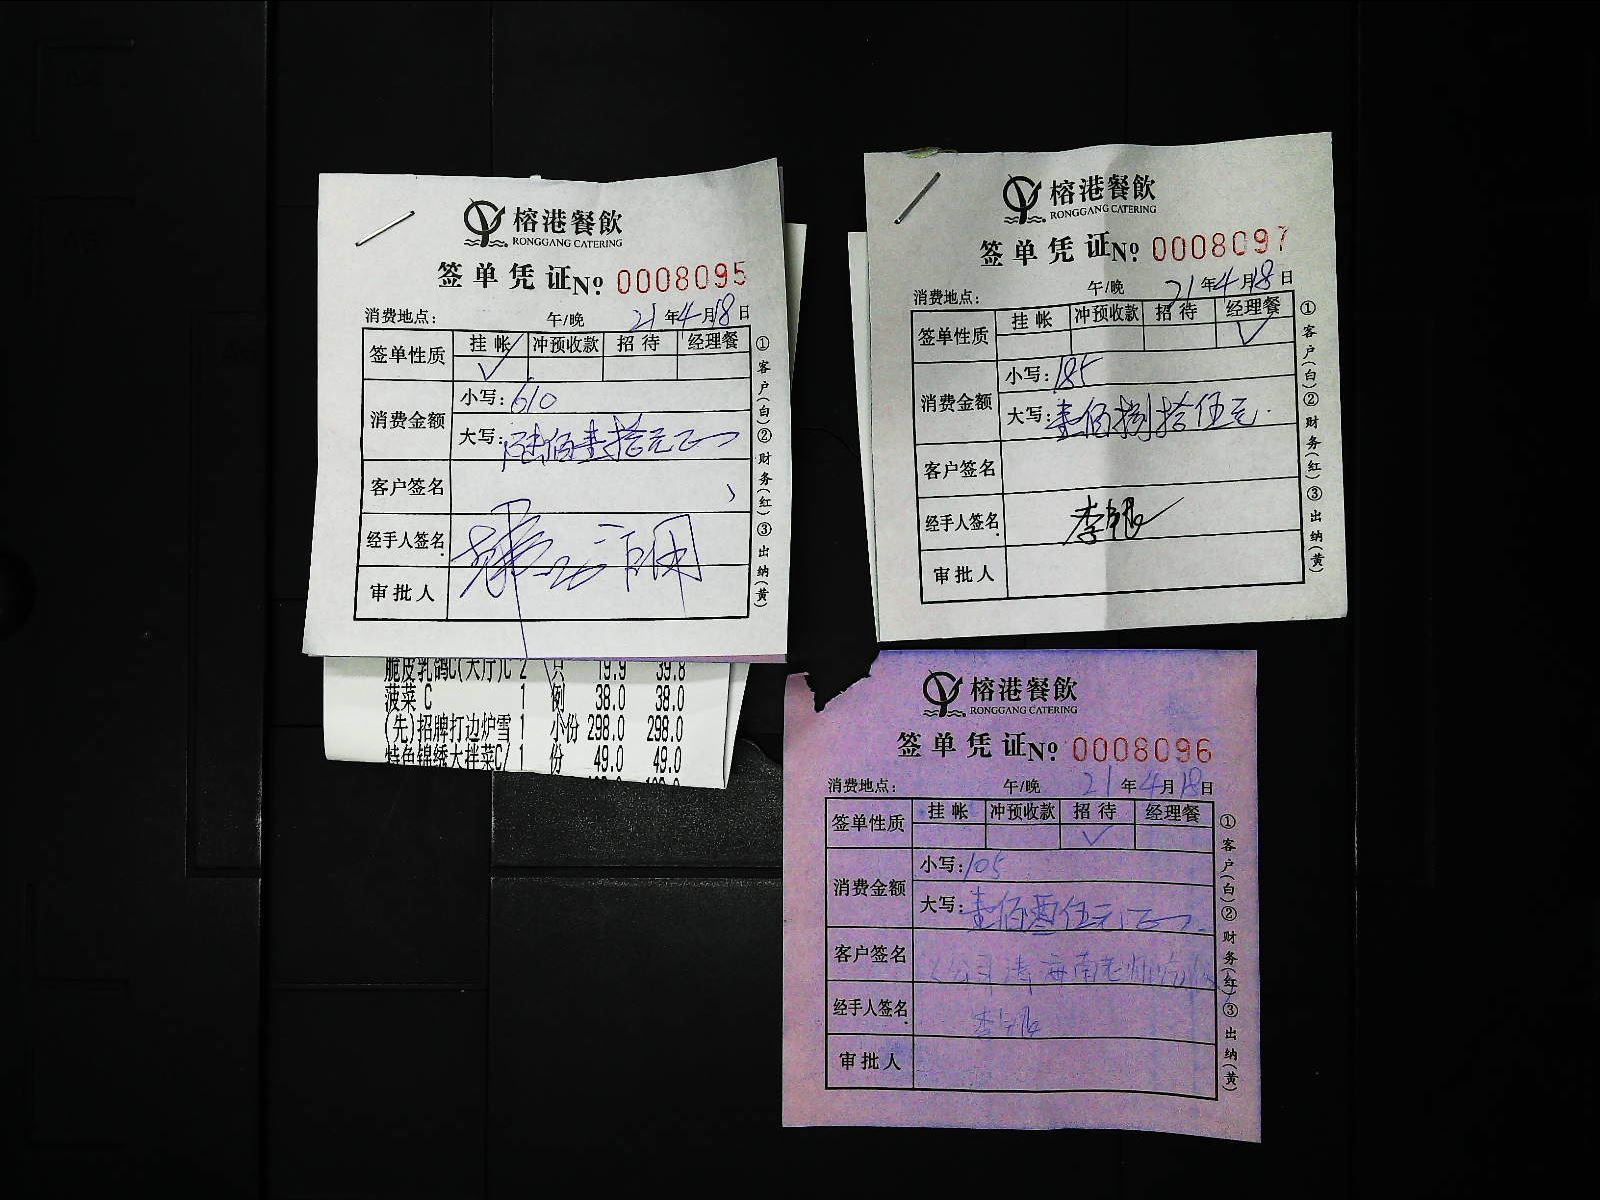 榕港餐飲
RONGGANG CATERING
签单凭证 No 0008095
消费地点: 午/晚 21年4月18日
签单性质 挂帐 冲预收款 招待 经理餐
✓
消费金额 小写: 610
大写: 陆佰壹拾元正
客户签名
经手人签名
审批人
①客户(白)②财务(红)③出纳(黄)
脆皮乳鸽C(大厅)C 2 只 19.9 39.8
菠菜 C 1 例 38.0 38.0
(先)招牌打边炉雪 1 小份 298.0 298.0
特色锦绣大拌菜C/ 1 份 49.0 49.0
榕港餐飲
RONGGANG CATERING
签单凭证 No 0008097
消费地点: 午/晚 21年4月18日
签单性质 挂帐 冲预收款 招待 经理餐
✓
消费金额 小写: 185
大写: 壹佰捌拾伍元
客户签名
经手人签名 李
审批人
①客户(白)②财务(红)③出纳(黄)
榕港餐飲
RONGGANG CATERING
签单凭证 No 0008096
消费地点: 午/晚 21年4月18日
签单性质 挂帐 冲预收款 招待 经理餐
✓
消费金额 小写: 105
大写: 壹佰零伍元正
客户签名 公司请海南老师吃
经手人签名 李
审批人
①客户(白)②财务(红)③出纳(黄)